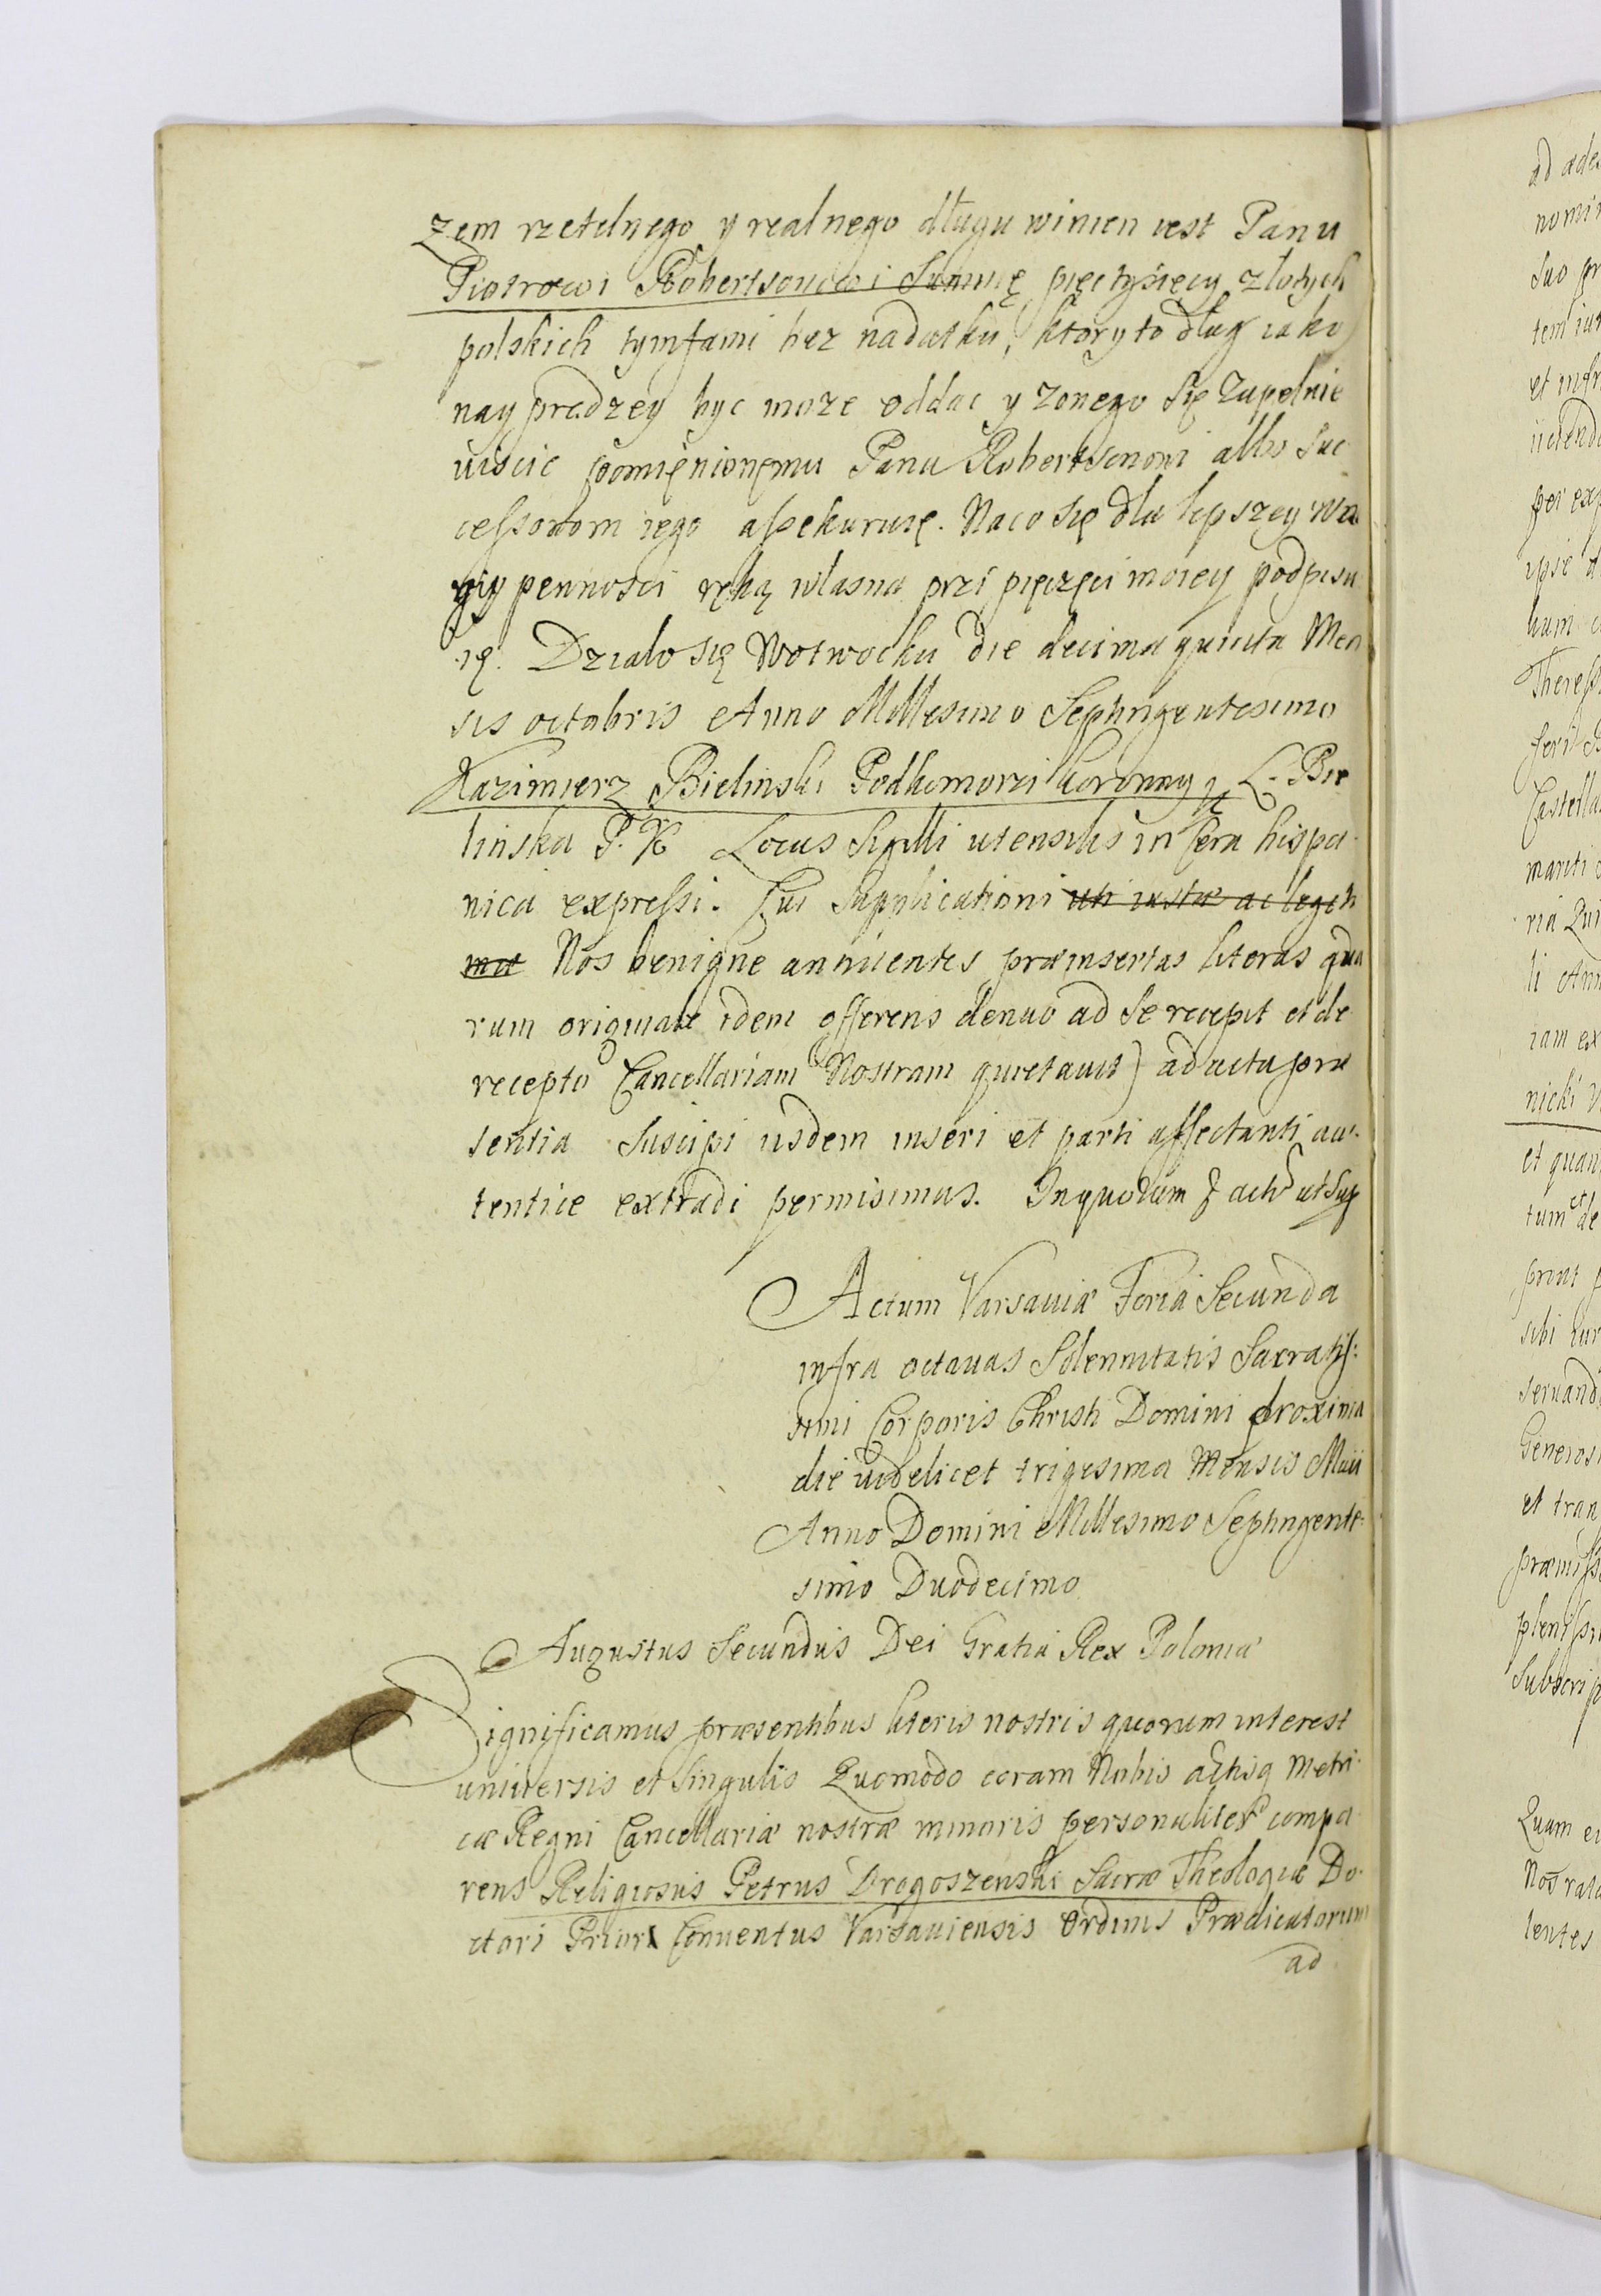 zem rzetelnego y realnego długu winien iest Panu
Piotrowi Robertsonowi Summę pięc tysięcy złotych
polskich tymfami bez nadatku, ktory to dług iako
nayprędzey byc moze oddac y zonego się Zupełnie
uiscic pomięnionęmu Panu Robertsonowi albo Suc
cessorom iego assekuruię. Naco się dla lepszey wa
gi y pewnosci ręką własna przi pięczęci moiey podpisu
ię. Działo się Wotwocku die decima quinta Men
sis octobris Anno Millesimo Septingentesimo
Kazimierz Bielinski Podkomorzi koronny L. Bie
linska P. K Locus Sigilli utensilis in Cera hispa
nica expressi. Cui Supplicationi uti iustæ ac legiti
mæ Nos benigne annuentes præinsertas literas qua
rum originale idem offerens denuo ad Se recepit et de
recepto Cancellariam Nostram quietauit) ad acta præ
sentia Suscipi iisdem inseri et parti affectanti au
tentice extradi permisimus. In quorum f act ut sup
Actum Varsauiæ Feria Secunda
infra octauas Solennitatis Sacratiss:
simi Corporis Christi Domini proxima
die uidelicet trigesima Mensis Maii
Anno Domini Millesimo Septingente:
simo Duodecimo
Augustus Secundus Dei Gratia Rex Poloniæ
Significamus præsentibus literis nostris quorum interest
uniuersis et Singulis Quomodo coram Nobis actisq Metri
cæ Regni Cancellariæ nostræ minoris personaliter compa
rens Religiosus Petrus Drogoszenski Sacræ Theologiæ Do
ctori Prior Conuentus Varsauiensis Ordinis Prædicatorum
ad